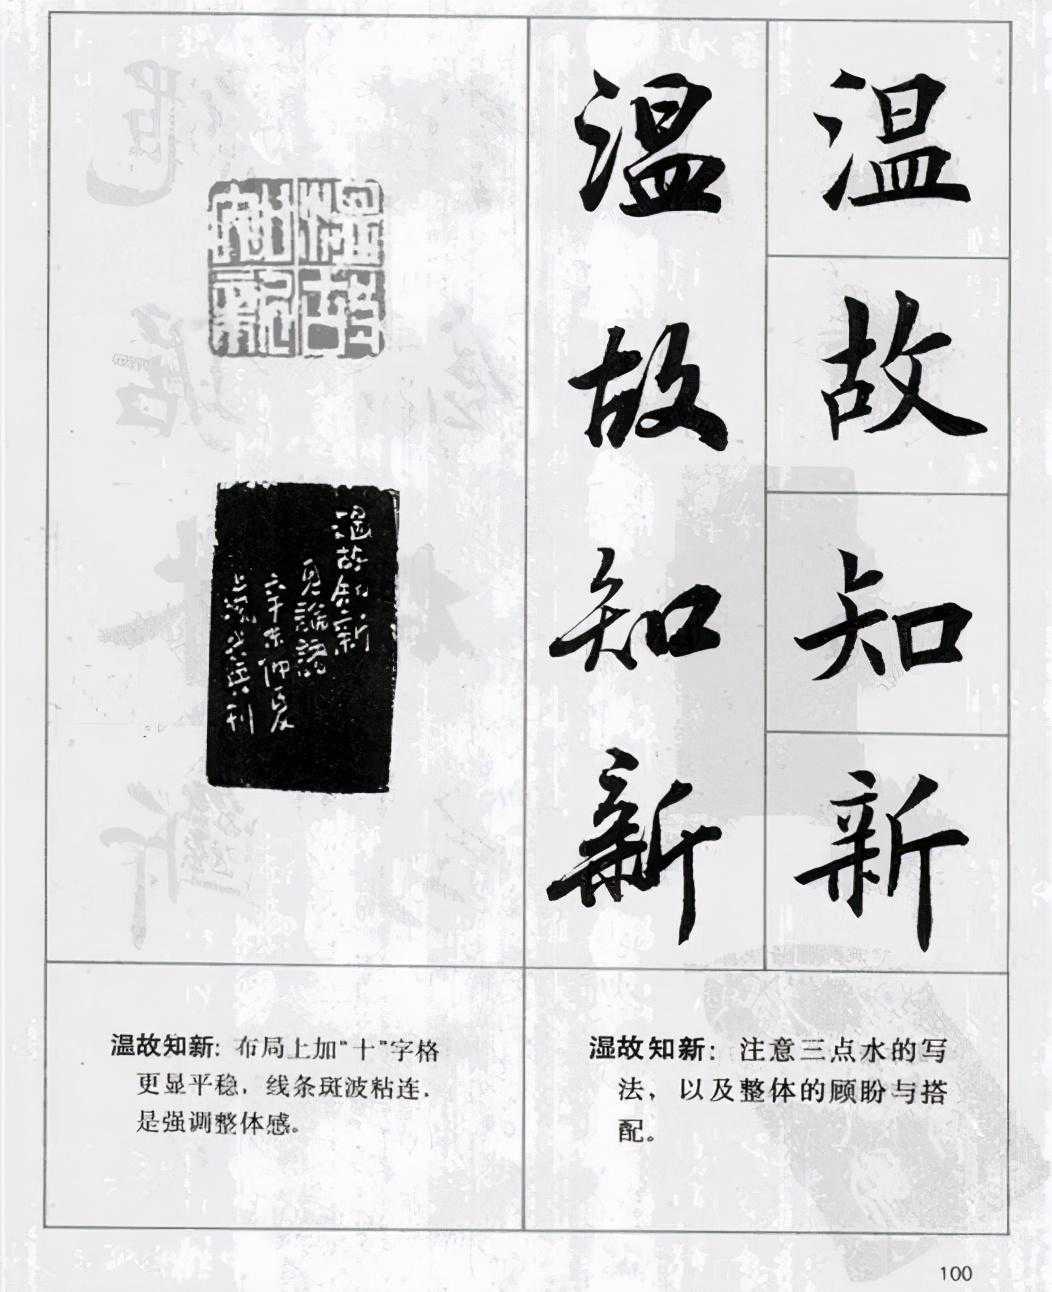 温故知新
温故知新
温故知新
温故知新
见论语
辛未仲夏
温故知新：布局上加“十”字格
更显平稳，线条斑波粘连，
是强调整体感。
温故知新：注意三点水的写
法，以及整体的顾盼与搭
配。
100